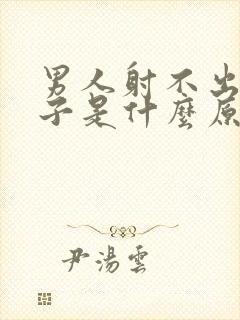 男人射不出
子是什麼原
尹湯雲